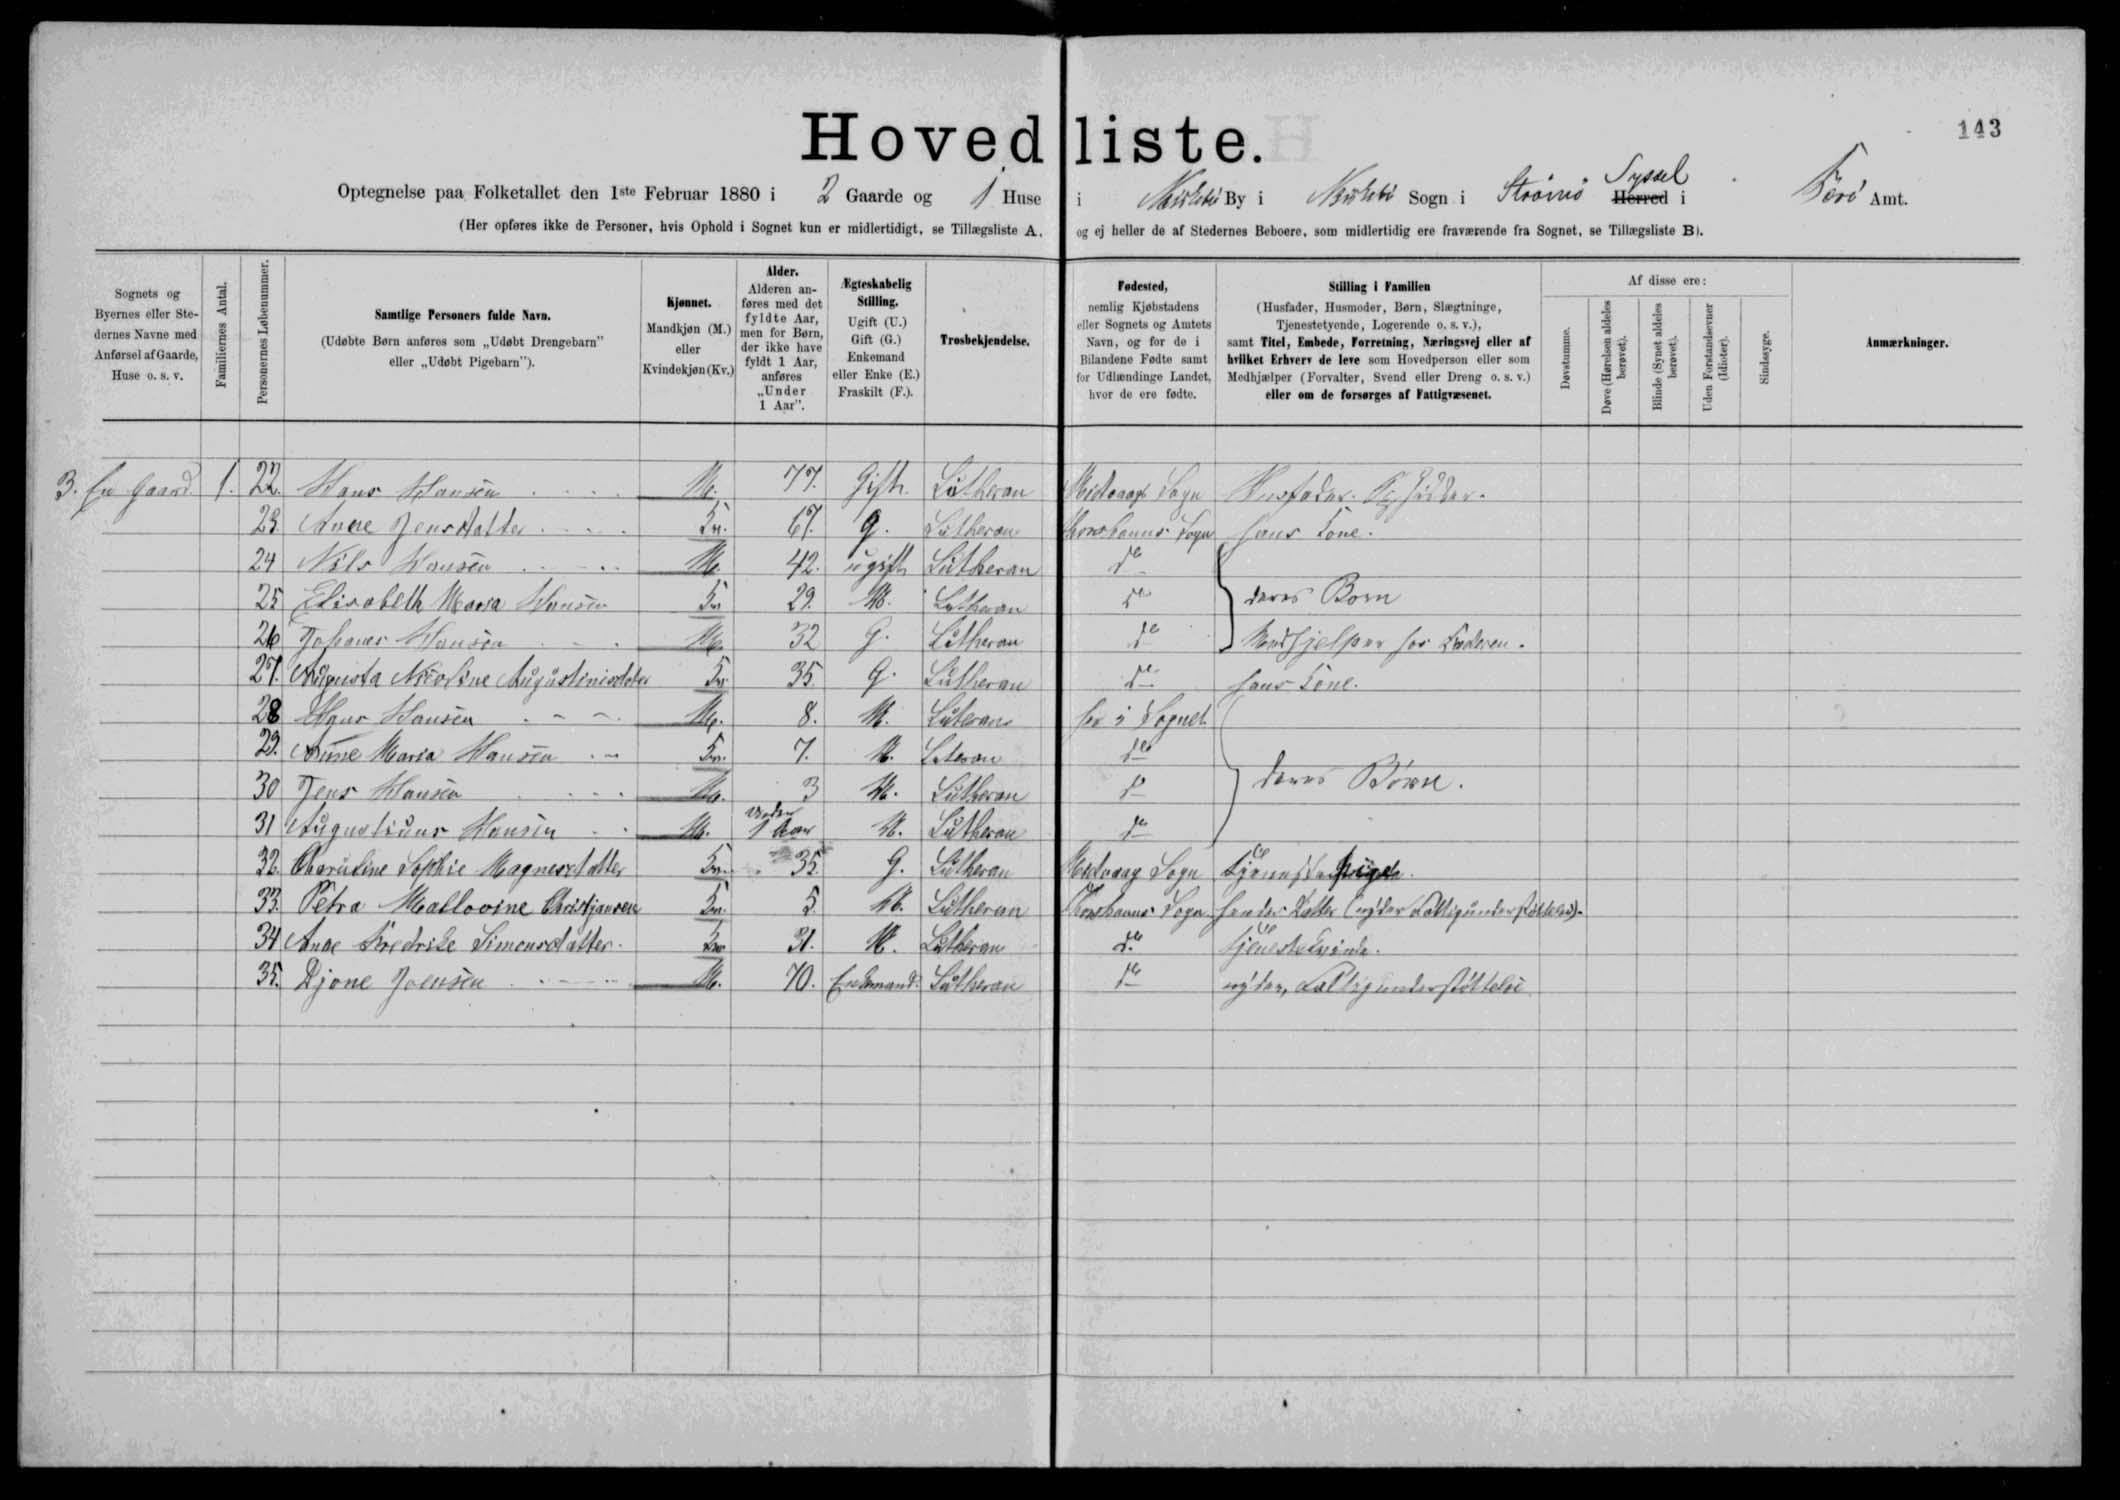 143
Hovedliste.
Optegnelse paa Folketallet den 1ste Februar 1880 i 2 Gaarde og 1 Huse i By i Sogn i Strømø Syssel Herred i Færø Amt.
(Her opføres ikke de Personer, hvis Ophold i Sognet kun er midlertidigt, se Tillægsliste A. og ej heller de af Stedernes Beboere, som midlertidig ere fraværende fra Sognet, se Tillægsliste B).
Sognets og
Byernes eller Ste-
dernes Navne med
Anførsel af Gaarde,
Huse o. s. v.
Familiernes Antal.
Personernes Løbenummer.
Samtlige Personers fulde Navn.
(Udøbte Børn anføres som „Udøbt Drengebarn"
eller „Udøbt Pigebarn").
Kjønnet.
Mandkjøn (M.)
eller
Kvindekjøn (Kv.)
Alder.
Alderen an-
føres med det
fyldte Aar,
men for Børn,
der ikke have
fyldt 1 Aar,
anføres
„Under
1 Aar".
Ægteskabelig
Stilling.
Ugift (U.)
Gift (G.)
Enkemand
eller Enke (E.)
Fraskilt (F.).
Trosbekjendelse.
Fødested,
nemlig Kjøbstadens
eller Sognets og Amtets
Navn, og for de i
Bilandene Fødte samt
for Udlændinge Landet,
hvor de ere fødte.
Stilling i Familien
(Husfader, Husmoder, Børn, Slægtninge,
Tjenestetyende, Logerende o. s. v.),
samt Titel, Embede, Forretning, Næringsvej eller af
hvilket Erhverv de leve som Hovedperson eller som
Medhjælper (Forvalter, Svend eller Dreng o. s. v.)
eller om de forsørges af Fattigvæsenet.
Af disse ere:
Døvstumme.
Døve (Hørelsen aldeles
berøvet).
Blinde (Synet aldeles
berøvet).
Uden Forstandsevner
(Idioter).
Sindssyge.
Anmærkninger.
3. En Gaard. 1. 22. Hans Hansen M. 77. Gift. Lutheran Sogn Husfader.
23. Anne Jensdatter Kv. 67. G. Lutheran Thorshavns Sogn hans Kone.
24 Nils Hansen M. 42. ugift Lutheran do
25 Elisabeth Maria Hansen Kv 29. U. Lutheran do deres Born
26 Johanes Hansen M. 32 G. Lutheran do Medhjelper for Faderen.
27. Augusta Nicoline Augustinisdatter Kv. 35. G. Lutheran do hans Kone.
28 Hansen M. 8. U. Luteran her i Sognet
29. Anne Maria Hansen Kv. 7. U. Luteran do
30 Jens Hansen M. 3 U. Lutheran do deres Børn.
31 Augustinus Hansen M. under 1 Aar U. Lutheran do
32. Sophie Magnesdatter Kv. 35. G. Lutheran Sogn
33. Petra Mallovine Christjansen Kv. 5. U. Lutheran Thorshavns Sogn hendes Datter (nyder Fattigunderstøttelse).
34 Anne Fredrike Simonsdatter Kv. 31. U. Lutheran do Tjenestekvinde.
35. Djone Joensen M. 70. Enkemand. Lutheran do nyder, Fattigunderstøttelse